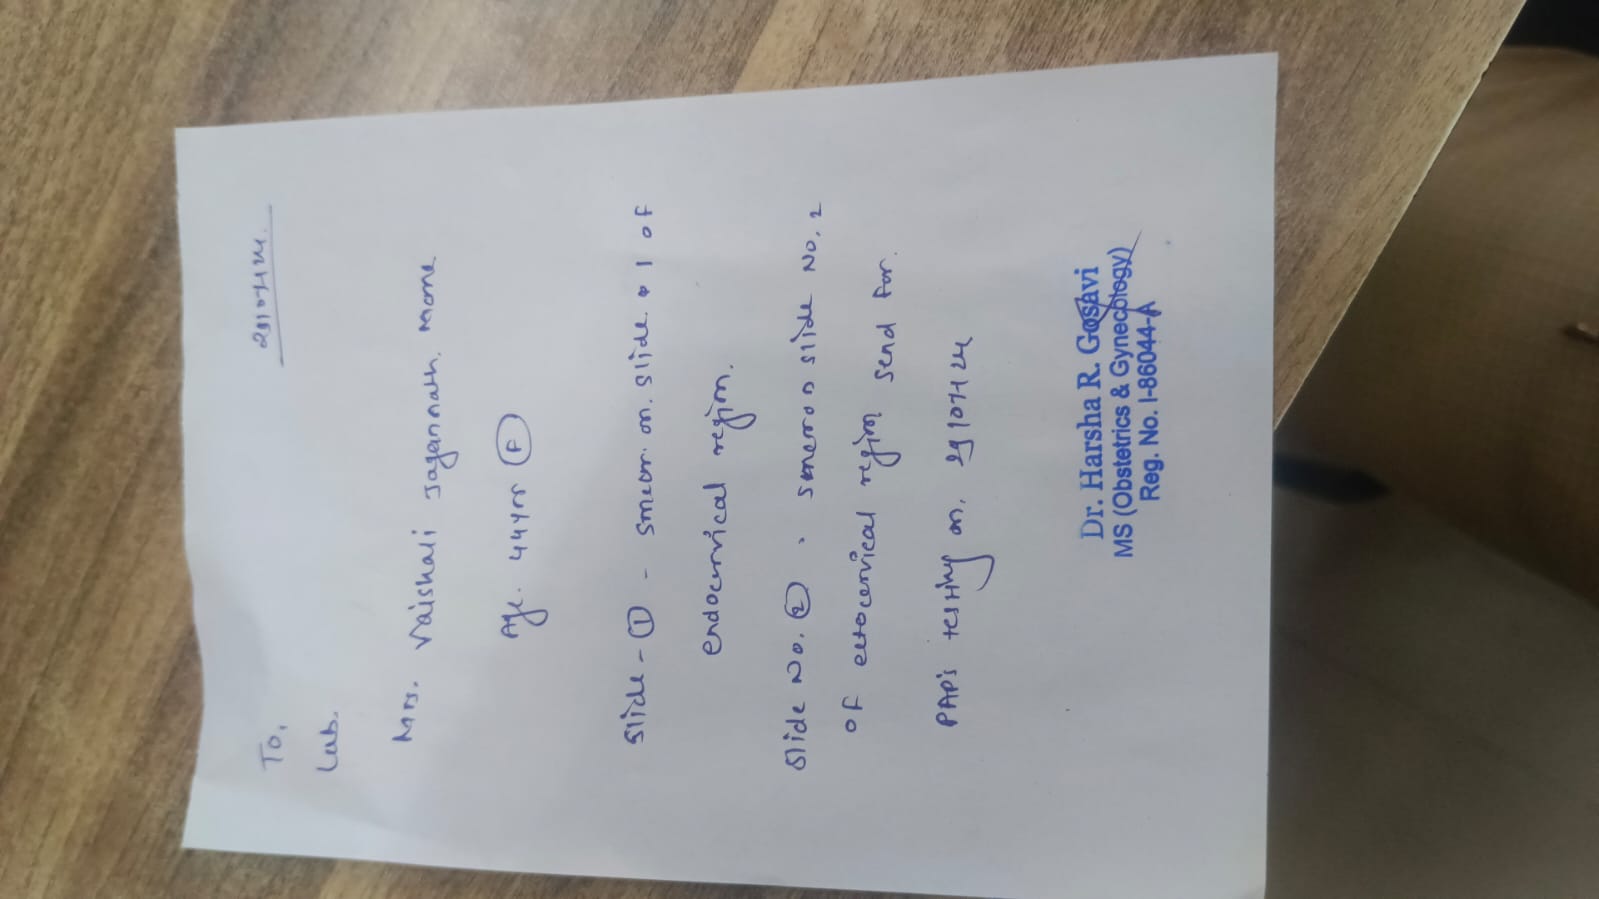 29/07/24.
To,
Lab.
Mrs. Vaishali Jagannath. Mome
Age. 44yr (F)
Slide - (1) - Smear. on. slide. 1 of
endocervical region.
Slide No. (2) . smear on slide No. 2
of ectocervical region send for.
PAP's testing on. 29/07/24
Dr. Harsha R. Gosavi
MS (Obstetrics & Gynecology)
Reg. No. I-86044-A